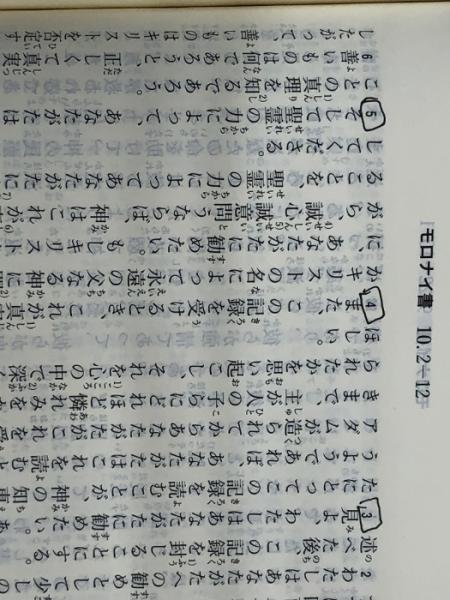 モロナイ書 10.2-12
2 わたしはあなたがたへの勧めとして少しの
述べた後、この記録を封じることにする。
3 見よ、わたしはあなたがたに勧めたい。あ
たにとってこの記録を読むことが、神の知恵
うようであれば、あなたがたはこれを読むと
アダムが造られてからあなたがたがこれを受
きまで、主が人の子らにどれほど憐れみを
られたかを思い起こし、それを心の中で深
ほしい。
4 また、この記録を受けるとき、これが真
かキリストの名によって永遠の父なる神に問
に、あなたがたに勧めたい。もしキリスト
がら、誠心誠意問うならば、神はこれが
ることを、聖霊の力によってあなたがたに
してくださる。
5 そして聖霊の力によって、あなたがたは
ことの真理を知るであろう。
6 善いものは何であろうと、正しくて真実
したがって、善いものはキリストを否定